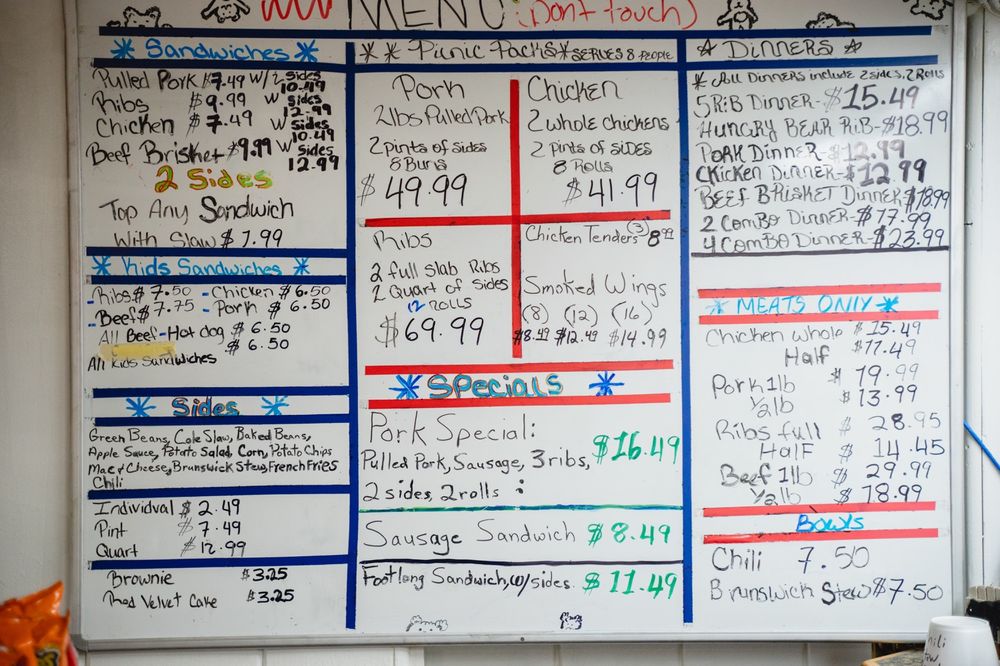 MENU (Don't touch)
Sandwiches
Pulled Pork $7.49 w/ 2 sides 10.49
Ribs $9.99 w sides 12.99
Chicken $7.49 w sides 10.49
Beef Brisket $9.99 w sides 12.99
2 Sides
Top Any Sandwich
With Slaw $1.99
Kids Sandwiches
Ribs $7.50 - Chicken $6.50
Beef $7.75 - Pork $6.50
All Beef-Hot dog $6.50
$6.50
All Kids Sandwiches
Sides
Green Beans, Cole Slaw, Baked Beans,
Apple Sauce, Potato Salad, Corn, Potato Chips
Mac & Cheese, Brunswick Stew, French Fries
Chili
Individual $2.49
Pint $7.49
Quart $12.99
Brownie $3.25
Red Velvet Cake $3.25
Picnic Packs SERVES 8 People
Pork
2lbs Pulled Pork
2 pints of sides
8 Buns
$49.99
Chicken
2 whole chickens
2 pints of sides
8 Rolls
$41.99
Ribs
2 full slab Ribs
2 Quart of sides
12 Rolls
$69.99
Chicken Tenders (3) 8.99
Smoked Wings
(8) (12) (16)
$8.49 $12.49 $14.99
Specials
Pork Special:
Pulled Pork, Sausage, 3 ribs, $16.49
2 sides, 2 rolls :
Sausage Sandwich $8.49
Footlong Sandwich, w/sides. $11.49
DINNERS
* All Dinners include 2 sides, 2 Rolls
5 RIB DINNER-$15.49
HUNGRY BEAR RIB-$18.99
PORK DINNER-$12.99
CHICKEN DINNER-$12.99
BEEF BRISKET DINNER $18.99
2 COMBO DINNER-$17.99
4 COMBO DINNER-$23.99
MEATS ONLY
Chicken whole $15.49
Half $11.49
Pork 1lb $19.99
1/2lb $13.99
Ribs full $28.95
Half $14.45
Beef 1lb $29.99
1/2lb $18.99
Bowls
Chili 7.50
Brunswick Stew $7.50